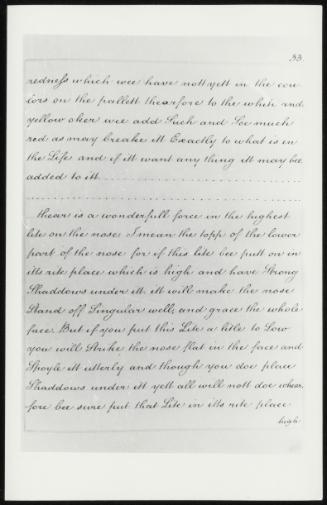 33
redness which wee have nott yett in the cou
lors on the pallett thearfore to the whitt and
yellow oker wee add Such and Soe much
red as may breake itt Exactly to what is in
the Life and if itt want any thing itt may bee
added to itt
thear is a wonderfull force in the highest
lite on the nose I mean the topp of the lower
part of the nose for if this lite bee putt on in
itts rite place which is high and have Strong
Shaddows under itt itt will make the nose
Stand off Singular well, and grace the whole
face. But if you put this Lite a litle to Low
you will Strike the nose flat in the face and
Spoyle itt utterly and though you doe place
Shaddows under itt yett all will nott doe whear,
fore bee sure put that Lite in itts rite place
high